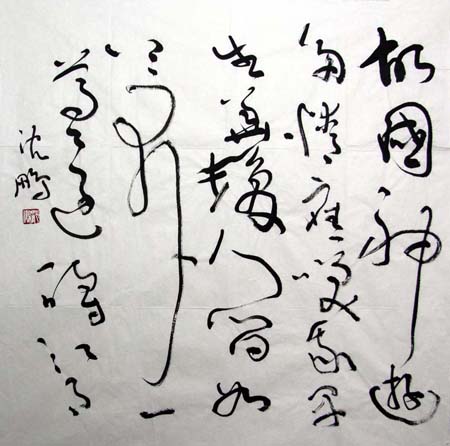 故國神遊
多情應笑我早
生華髮人間如
夢一
尊還酹江月
沈鵬